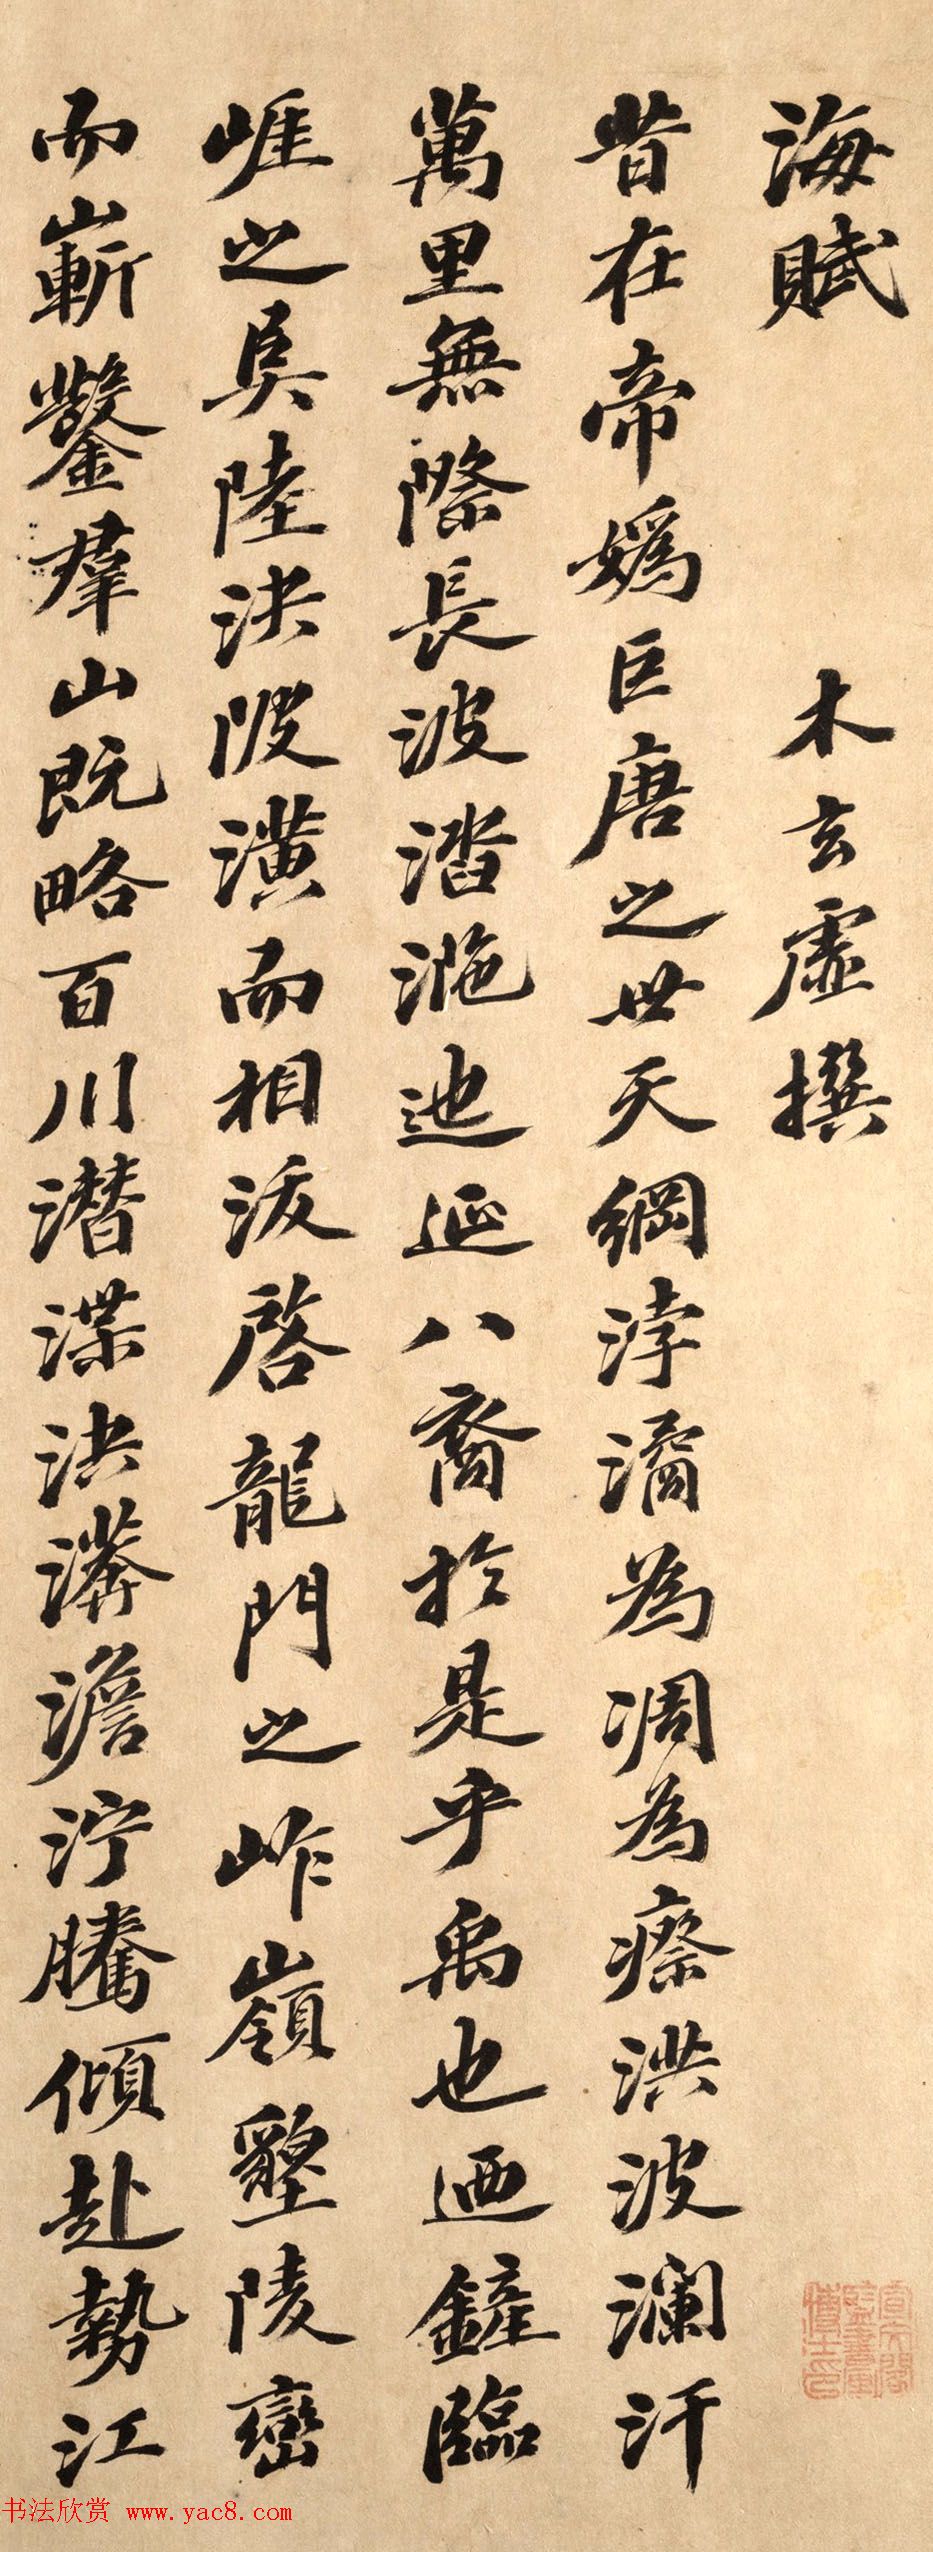 海賦
木玄虛撰
昔在帝媯巨唐之世天綱浡潏為凋為瘵洪波瀾汗
萬里無際長波涾㴰迆㢟八裔於是乎禹也迺鏟臨
崕之阜陸決陂潢而相沷啓龍門之岝嶺墾陵巒
而嶄鑿羣山既略百川潛渫泱漭澹泞騰傾赴勢江
宣文閣監書畫博士印
书法欣赏 www.yac8.com